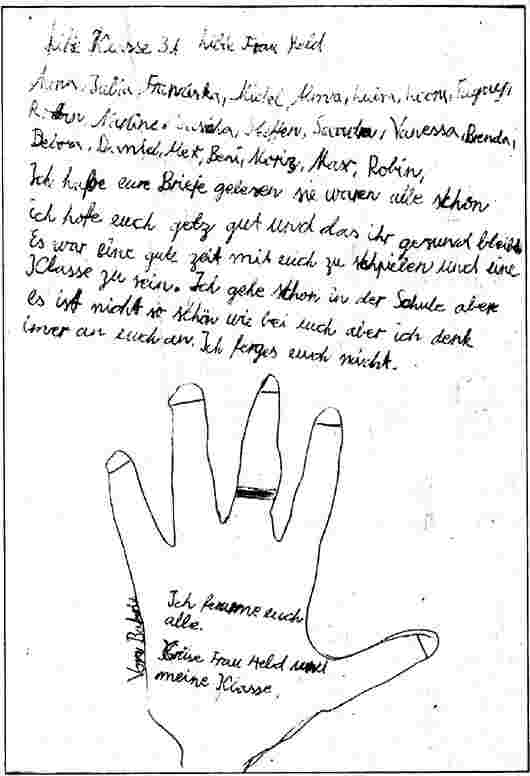 libe Klasse 3A liebe Frau Held
Anna, Julia, Franziska, Michel, Mirva, Luisa, Leon,
Nadine, Sascha, Steffen, Sandra, Vanessa, Brenda,
Debora, Daniel, Max, Beni, Moriz, Max, Robin,
Ich habe eure Briefe gelesen sie waren alle schön
ich hofe euch getz gut und das ihr gesund bleibt
Es war eine gute zeit mit euch zu schpielen und eine
Klasse zu sein. Ich gehe schon in der Schule aber
es ist nicht so schön wie bei euch aber ich denk
imer an euch an. Ich ferges euch nicht.
Ich euch
alle.
Grüse Frau Held und
meine Klasse.
Von